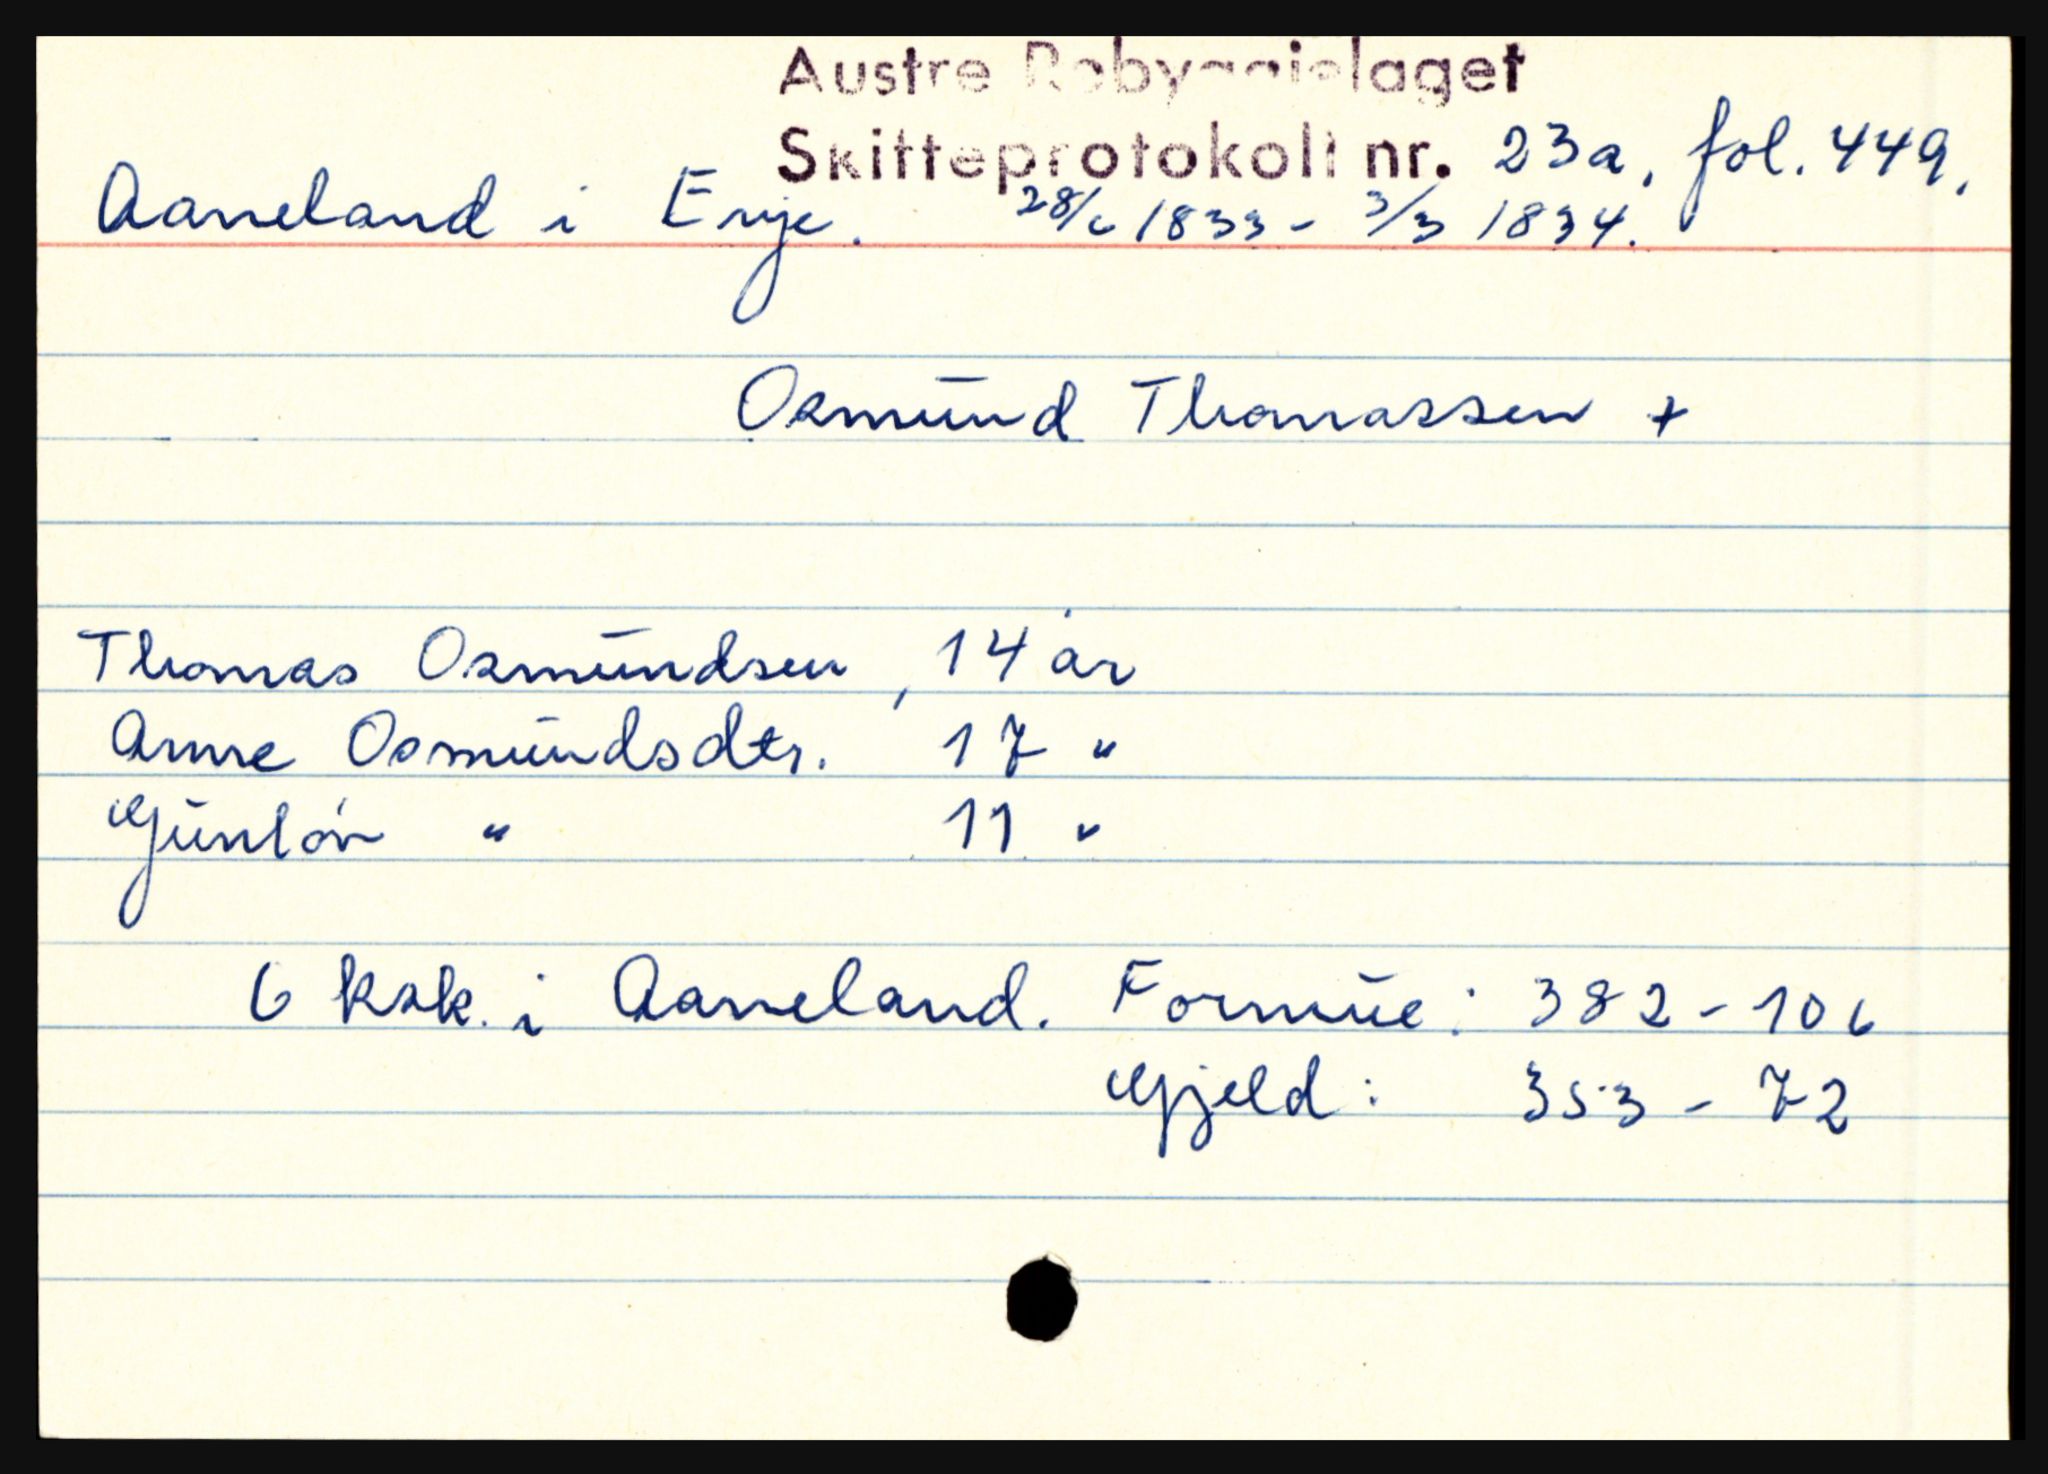 Austre Robyggjelaget
Skifteprotokoll nr. 23a, fol. 449.
Aaneland i Evje. 28/6 1833 - 3/3 1834.
Osmund Thomassen +
Thomas Osmundsen, 14 år
Anne Osmundsdtr. 17 "
Gunlöv " 11 "
6 ksk. i Aaneland. Formue: 382 - 106
Gjeld: 353 - 72